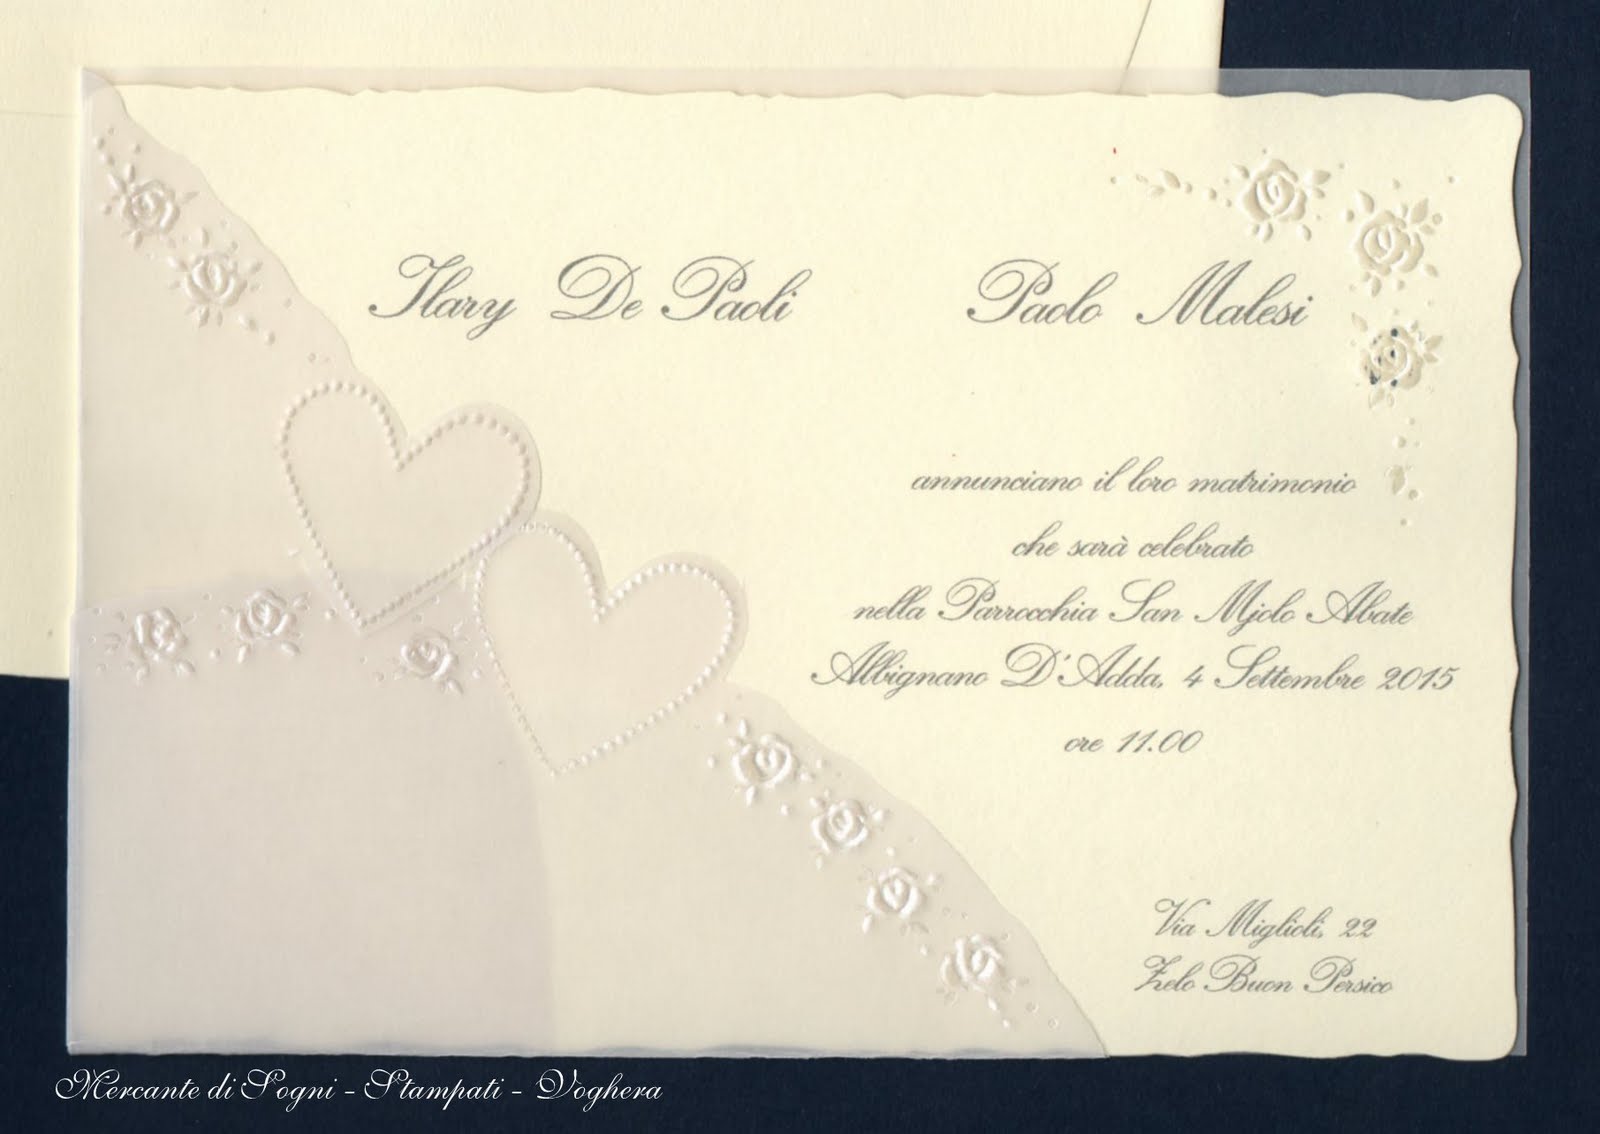 Ilary De Paoli Paolo Malesi
annunciano il loro matrimonio
che sarà celebrato
nella Parrocchia San Mjolo Abate
Albignano D'Adda, 4 Settembre 2015
ore 11.00
Via Miglioli, 22
Zelo Buon Persico
Mercante di Sogni - Stampati - Voghera